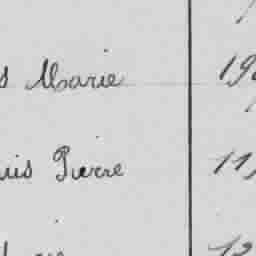 s Marie 19
uis Pierre 11